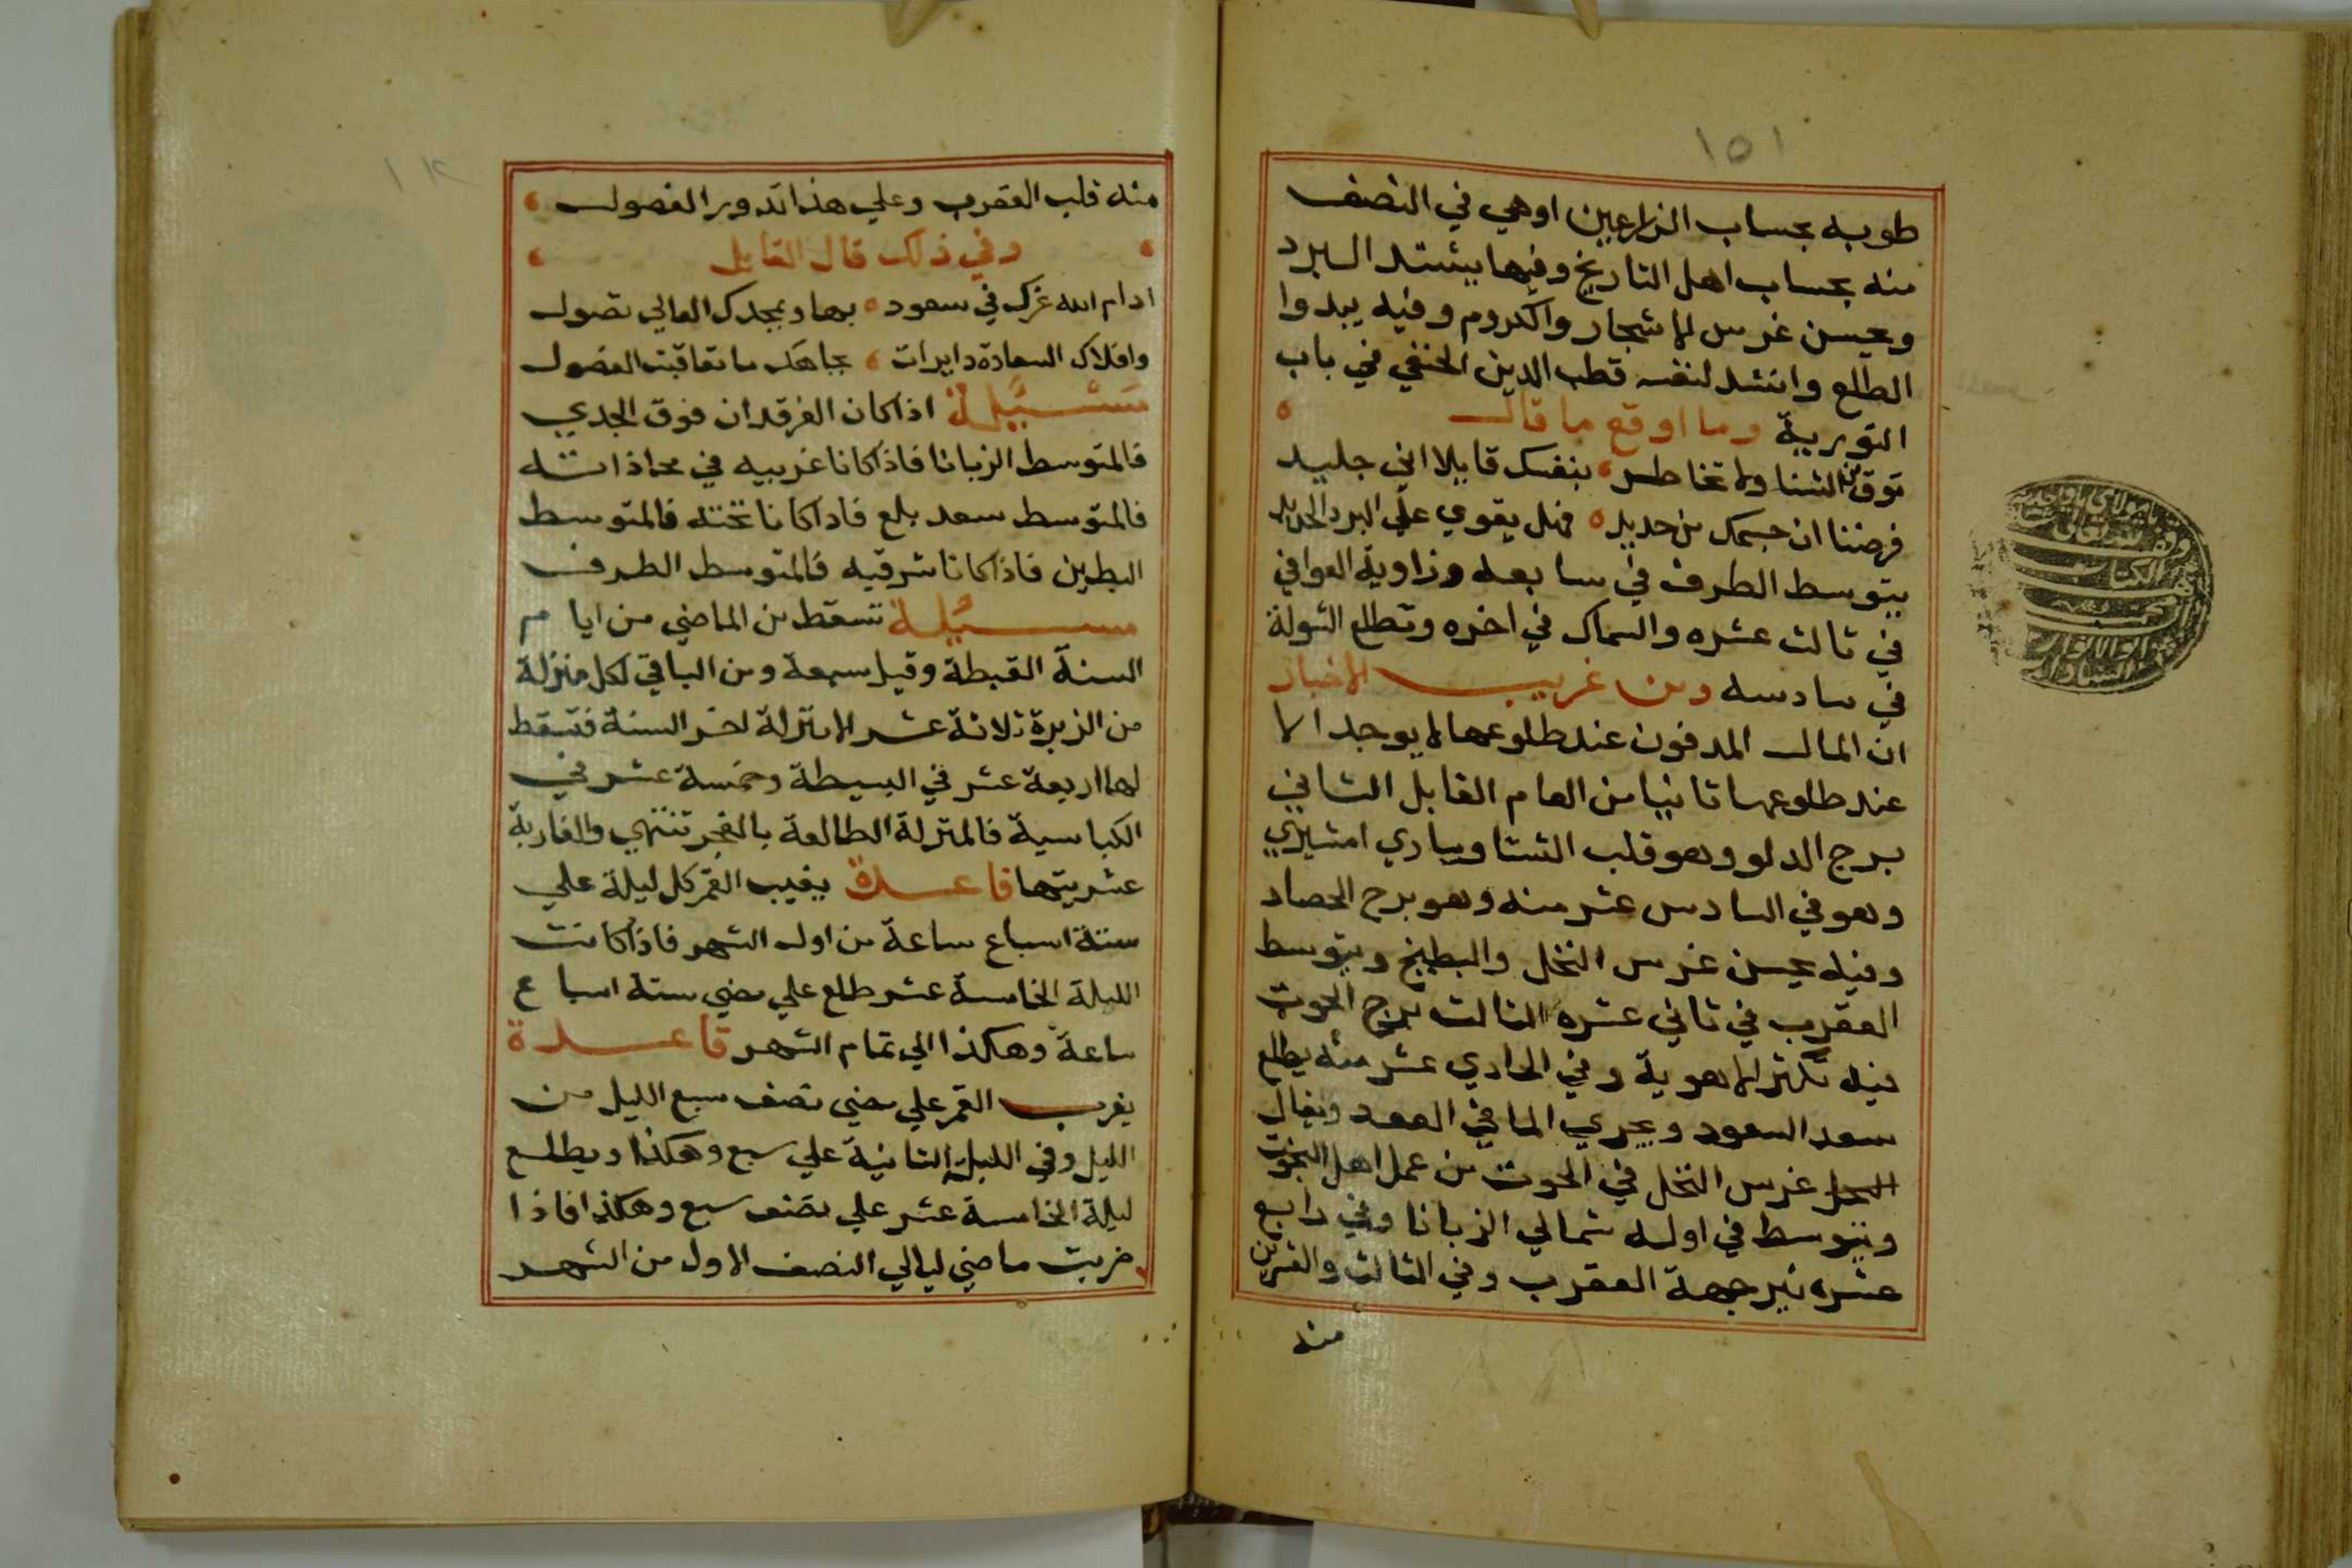 ١٥١
طوبه بحساب الزارعين اوهي في النصف
منه بحساب اهل التاريخ وفيها يشتد البرد
ويحسن غرس الاشجار والكروم وفيه يبدوا
الطلع وانشد لنفسه قطب الدين الحنفي في باب
التورية وما اوقع ما قال
توق من الشتا ولا تخاطر بنفسك قايلا اني جليد
فرضنا ان جسمك من حديد فهل يقوي علي البرد الحديد
يتوسط الطرف في سابعه وزاوية العوا في
في ثالث عشره والسماك في اخره وتطلع الشولة
في سادسه ومن غريب الاخبار
ان المال المدفون عند طلوعها لا يوجد الا
عند طلوعها ثانيا من العام القابل الثاني
برج الدلو وهو قلب الشتا ويبادي امشيري
وهو في السادس عشر منه وهو برج الحصاد
وفيه يحسن غرس النخل والبطيخ ويتوسط
العقرب في ثاني عشره الثالث برج الحوت
فيه تكثر الاهوية وفي الحادي عشر منه يطلع
سعد السعود ويجري الما في العود ويقال
غرس النخل في الحوت من عمل اهل
ويتوسط في اوله شمالي الزبانا وفي رابع
عشره نير جبهة العقرب وفي الثالث والعشرين
منه
منه قلب العقرب وعلي هذا تدوير الفصول
وفي ذلك قال القايل
ادام الله عزك في سعود بها وبمجدك العالي تصول
وافلاك السعادة دايرات بجاهك ما تعاقبت الفصول
مسئلة اذا كان الفرقدان فوق الجدي
فالمتوسط الزبانا فاذا كانا غربيه في محاذاته
فالمتوسط سعد بلع فاذا كانا تحته فالمتوسط
البطين فاذا كانا شرقيه فالمتوسط الطرف
مسئلة تسقط من الماضي من ايام
السنة القبطة وقيل سبعة ومن الباقي لكل منزلة
من الزبرة ثلاثة عشر الا منزلة اخر السنة فتسقط
لها اربعة عشر في البسيطة وخمسة عشر في
الكباسية فالمنزلة الطالعة بالفجر تنتهي والغاربة
عشريتها قاعدة يغيب القمر كل ليلة علي
ستة اسباع ساعة من اول الشهر فاذا كانت
الليلة الخامسة عشر طلع علي مضي ستة اسباع
ساعة وهكذا الي تمام الشهر قاعدة
يغرب القمر علي مضي نصف سبع الليل من
الليل وفي الليلة الثانية علي سبع وهكذا ويطلع
ليلة الخامسة عشر علي نصف سبع وهكذا فاذا
ضربت ماضي ليالي النصف الاول من الشهر